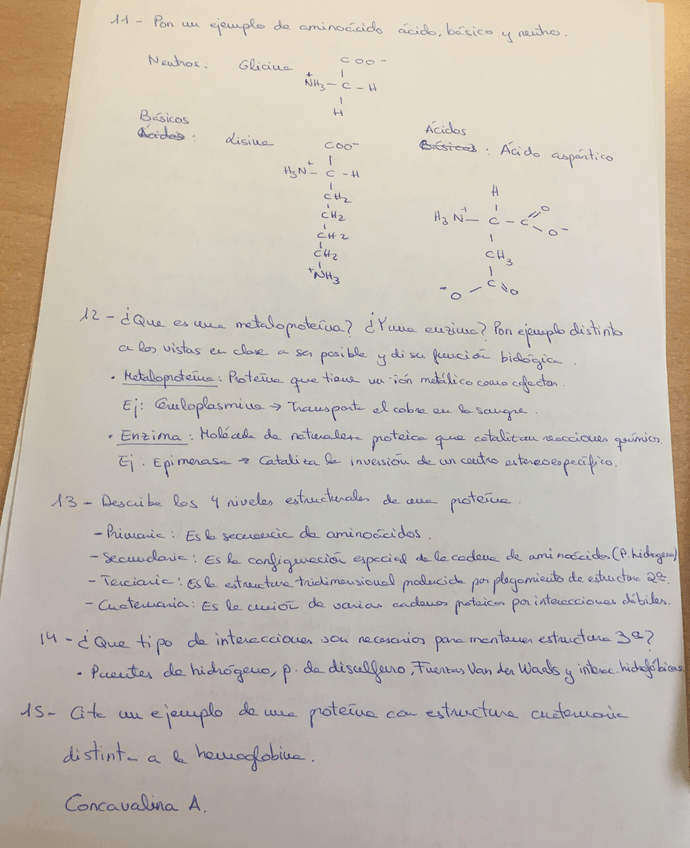 11- Pon un ejemplo de aminoácido ácido, básico y neutro.
Neutros: Glicina
COO⁻
⁺NH₃ - C - H
H
Básicos
Ácidos: Lisina
COO⁻
H₃N⁺ - C - H
CH₂
CH₂
CH₂
CH₂
⁺NH₃
Ácidos
Básicos: Ácido aspártico
H
H₃N⁺ - C - C = O
O⁻
CH₃
⁻O - C = O
12- ¿Que es una metaloproteína? ¿Y una enzima? Pon ejemplo distinto
a los vistos en clase a ser posible y di su función biológica.
• Metaloproteína: Proteína que tiene un ión metálico como cofactor.
Ej: Ceruloplasmina → Transporta el cobre en la sangre.
• Enzima: Molécula de naturaleza proteica que catalizan reacciones químicas.
Ej: Epimerasa → Cataliza la inversión de un centro estereoespecífico.
13- Describe los 4 niveles estructurales de una proteína:
- Primaria: Es la secuencia de aminoácidos.
- Secundaria: Es la configuración espacial de la cadena de aminoácidos (P. hidrogeno)
- Terciaria: Es la estructura tridimensional producida por plegamiento de estructura 2ª.
- Cuaternaria: Es la unión de varias cadenas proteicas por interacciones débiles.
14- ¿Que tipo de interacciones son necesarias para mantener estructura 3ª?
• Puentes de hidrógeno, p. de disulfuro, Fuerzas Van der Waals y interac. hidrofóbicas
15- Cita un ejemplo de una proteína con estructura cuaternaria
distinta a la hemoglobina.
Concavalina A.